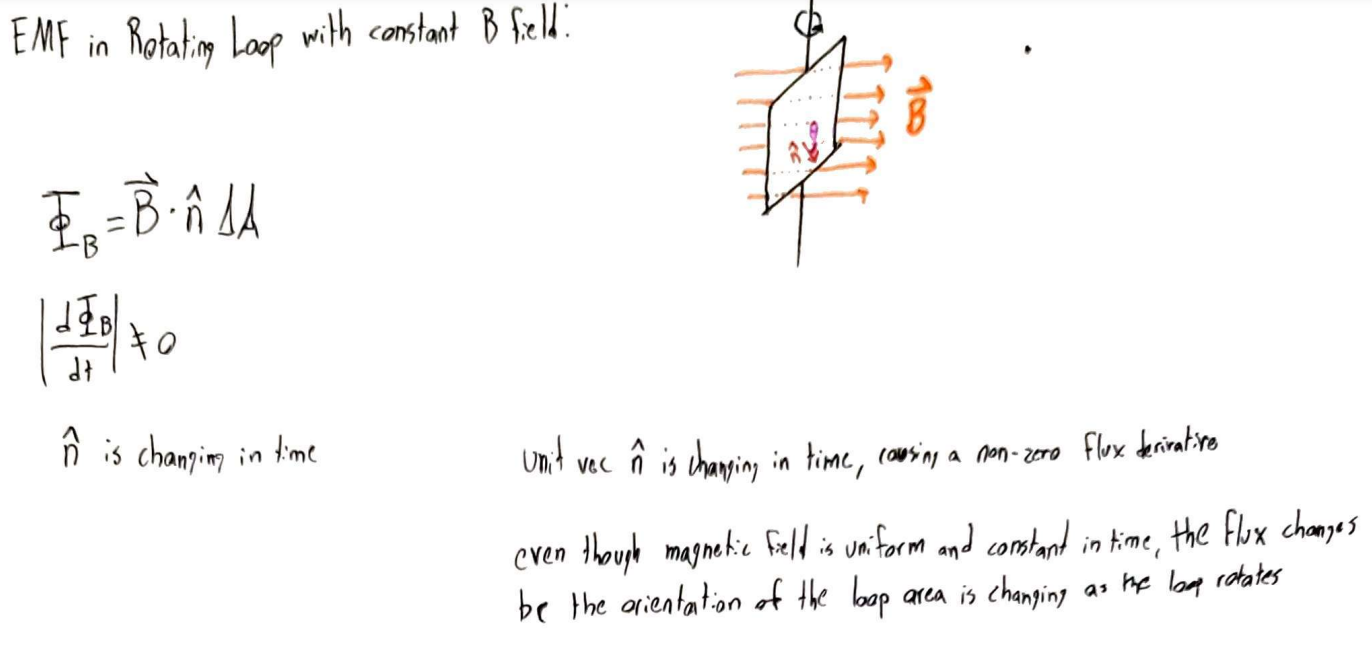 EMF in Rotating Loop with constant B field:
B⃗
n̂
Φ_B = B⃗ · n̂ ΔA
|dΦ_B/dt| ≠ 0
n̂ is changing in time
unit vec n̂ is changing in time, causing a non-zero flux derivative
even though magnetic field is uniform and constant in time, the flux changes
bc the orientation of the loop area is changing as the loop rotates